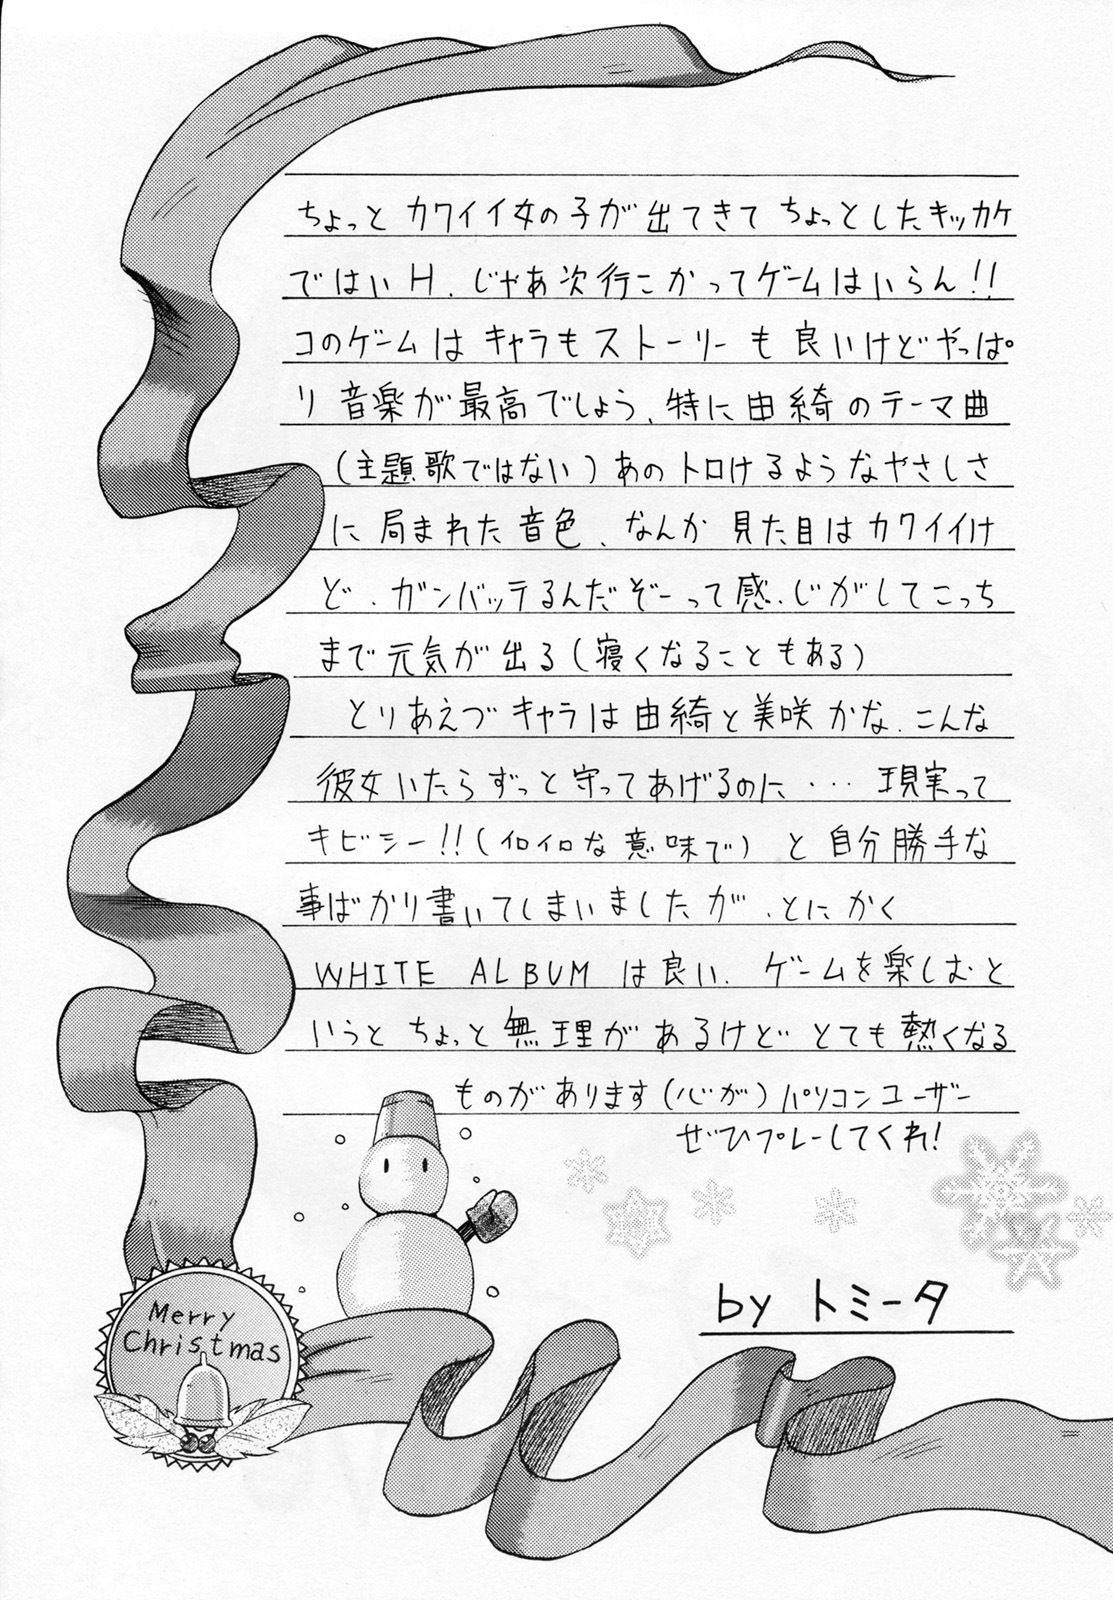 ちょっと カワイイ女の子が 出てきて ちょっとした キッカケ
ではい H、じゃあ次行こかってゲームはいらん!!
コのゲームは キャラも ストーリーも 良いけど やっぱ
り 音楽が最高でしょう、特に 由綺 のテーマ曲
(主題歌ではない)あのトロけるようなやさしさ
に 局まれた 音色、なんか 見た目は カワイイけ
ど、ガンバッテるんだぞーって感じがしてこっち
まで元気が出る(寝くなることもある)
とりあえづ キャラは由綺と美咲かな、こんな
彼女いたら ずっと 守ってあげるのに・・・ 現実って
キビシー!!(イロイロな意味で) と 自分勝手な
事ばかり書いてしまいましたが、とにかく
WHITE ALBUM は良い、ゲームを楽しむと
いうと ちょっと 無理があるけど とても 熱くなる
ものがあります(心が)パソコンユーザー
ぜひプレーしてくれ!
by トミータ
Merry
Christmas